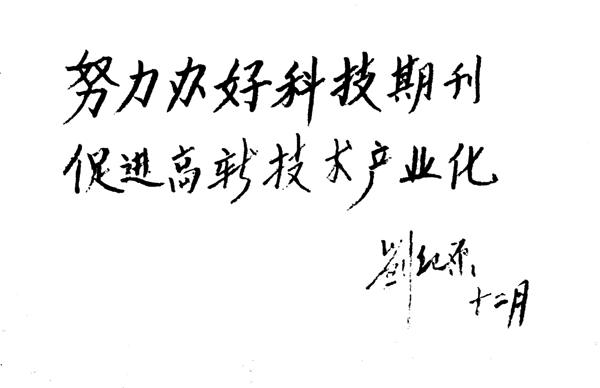 努力办好科技期刊
促进高新技术产业化
刘纪原
十二月